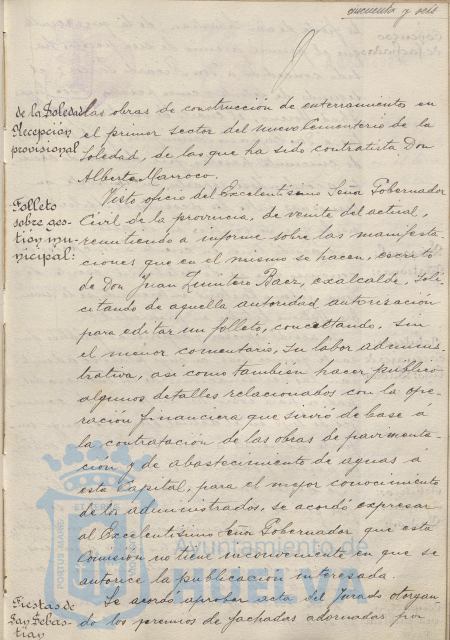 cincuenta y seis
de la Soledad
Recepción
provisional
las obras de construcción de enterramiento en
el primer sector del nuevo Cementerio de la
Soledad, de las que ha sido contratista Don
Alberto Marroco.
Folleto
sobre ges-
tion mu-
nicipal:
Visto oficio del Excelentísimo Señor Gobernador
Civil de la provincia, de veinte del actual,
remitiendo a informe sobre las manifesta-
ciones que en el mismo se hacen, escrito
de Don Juan Quintero Baez, exalcalde, soli-
citando de aquella autoridad autorización
para editar un folleto, concretando, sin
el menor comentario, su labor adminis-
trativa, así como también hacer público
algunos detalles relacionados con la ope-
ración financiera que sirvió de base a
la contratación de las obras de pavimenta-
ción y de abastecimiento de aguas á
esta Capital, para el mejor conocimiento
de los administrados, se acordó expresar
al Excelentísimo Señor Gobernador que esta
Comisión no tiene inconveniente en que se
autorice la publicación interesada.
Fiestas de
San Sebas-
tian
Se acordó aprobar acta del Jurado otorgan-
do los premios de fachadas adornadas por
PORTUS MARIS
Ayuntamiento de
HUELVA